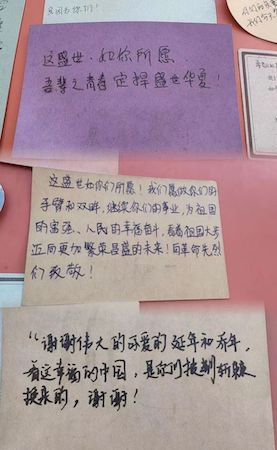 且因为你们!
这盛世,如你所愿
吾辈之青春定捍盛世华夏!
这盛世如你们所愿!我们愿做你们的
手臂和双眸,继续你们的事业,为祖国
的富强、人民的幸福奋斗,看着祖国大步
迈向更加繁荣昌盛的未来!向革命先烈
们致敬!
“谢谢伟大的可爱的延年和乔年,
看这幸福的中国,是你们披荆斩棘
换来的,谢谢!